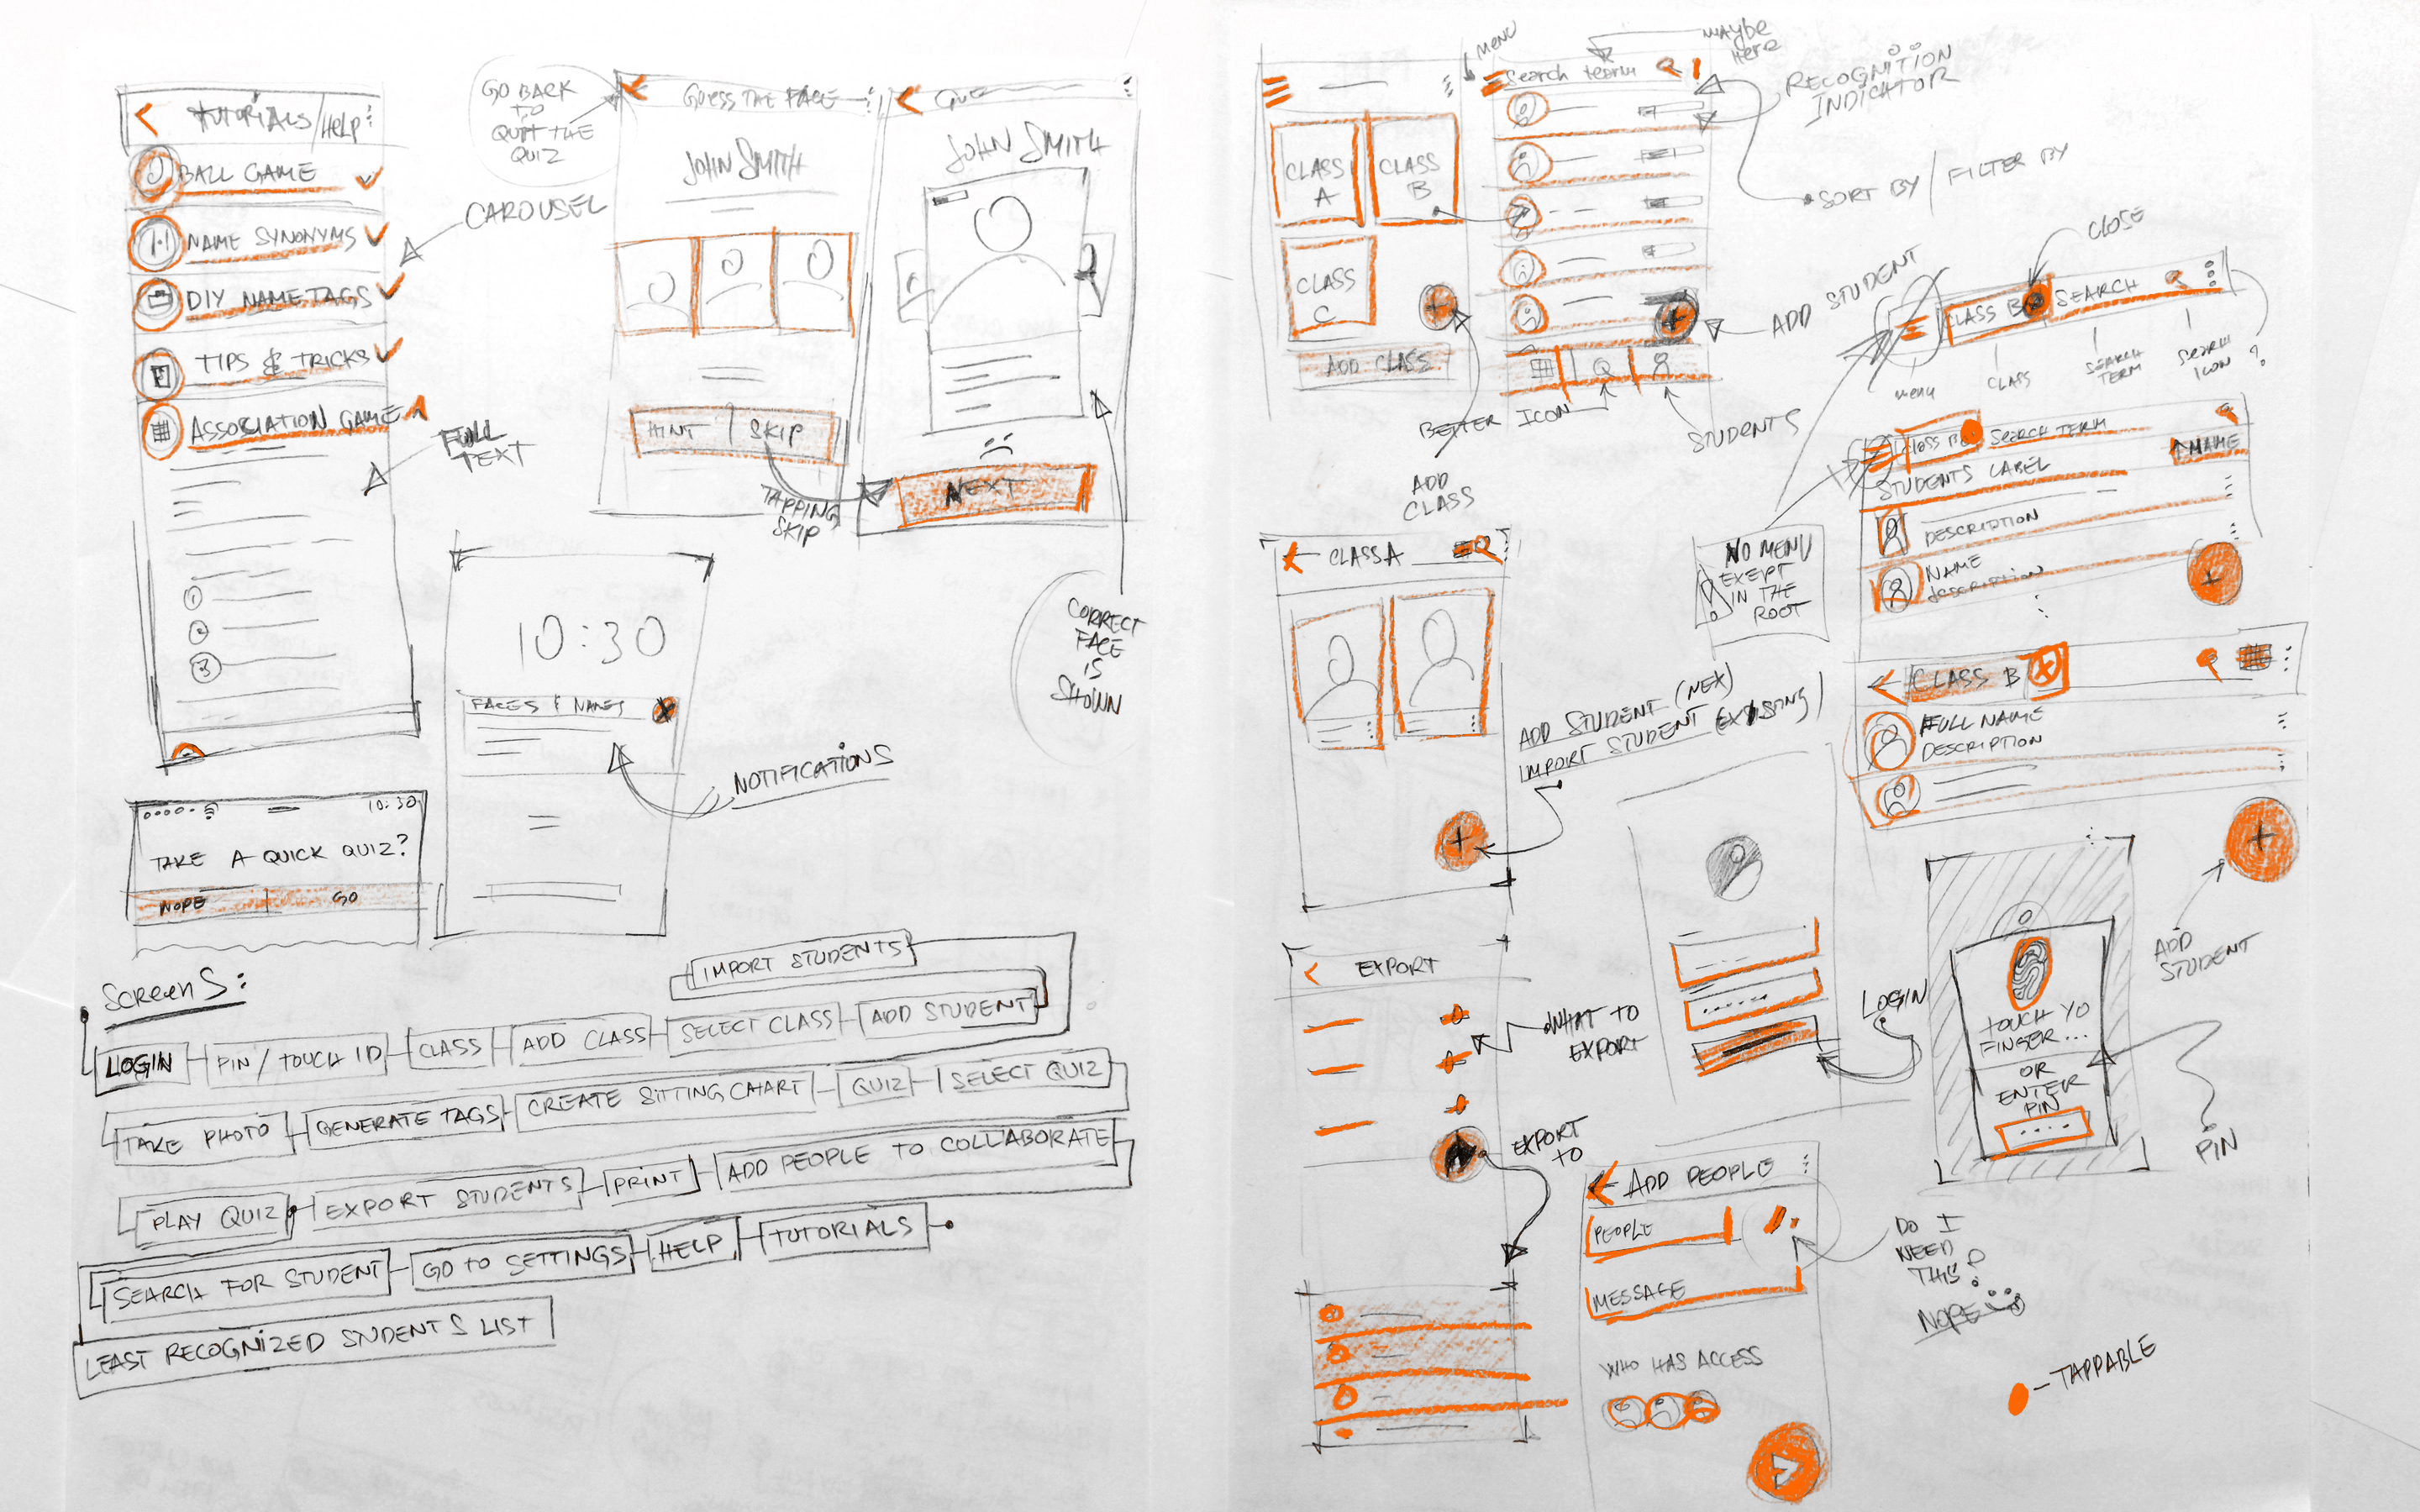 TUTORIALS/HELP
BALL GAME
NAME SYNONYMS
DIY NAMETAGS
TIPS & TRICKS
ASSOCIATION GAME
CAROUSEL
FULL
TEXT
1
2
3
GO BACK
TO
QUIT THE
QUIZ
GUESS THE FACE
JOHN SMITH
HINT
SKIP
TAPPING
SKIP
JOHN SMITH
NEXT
CORRECT
FACE
IS
SHOWN
10:30
FACES & NAMES
NOTIFICATIONS
10:30
TAKE A QUICK QUIZ?
NOPE
GO
SCREENS:
IMPORT STUDENTS
LOGIN
PIN / TOUCH ID
CLASS
ADD CLASS
SELECT CLASS
ADD STUDENT
TAKE PHOTO
GENERATE TAGS
CREATE SITTING CHART
QUIZ
SELECT QUIZ
PLAY QUIZ
EXPORT STUDENTS
PRINT
ADD PEOPLE TO COLLABORATE
SEARCH FOR STUDENT
GO TO SETTINGS
HELP
TUTORIALS
LEAST RECOGNIZED STUDENTS LIST
MENU
MAYBE
HERE
Search term
RECOGNITION
INDICATOR
CLASS
A
CLASS
B
CLASS
C
ADD CLASS
SORT BY / FILTER BY
ADD STUDENT
BETTER ICON
STUDENTS
ADD
CLASS
CLOSE
CLASS B
SEARCH
menu
CLASS
SEARCH
TERM
SEARCH
ICON
?
CLASS B
SEARCH TERM
STUDENTS LABEL
NAME
DESCRIPTION
NAME
description
NO MENU
EXEPT
IN THE
ROOT
CLASS A
ADD STUDENT (NEX)
IMPORT STUDENT (EXISTING)
CLASS B
FULL NAME
DESCRIPTION
ADD
STUDENT
LOGIN
TOUCH YO
FINGER...
OR
ENTER
PIN
PIN
EXPORT
WHAT TO
EXPORT
EXPORT
TO
ADD PEOPLE
PEOPLE
MESSAGE
WHO HAS ACCESS
DO I
NEED
THIS?
NOPE
- TAPPABLE